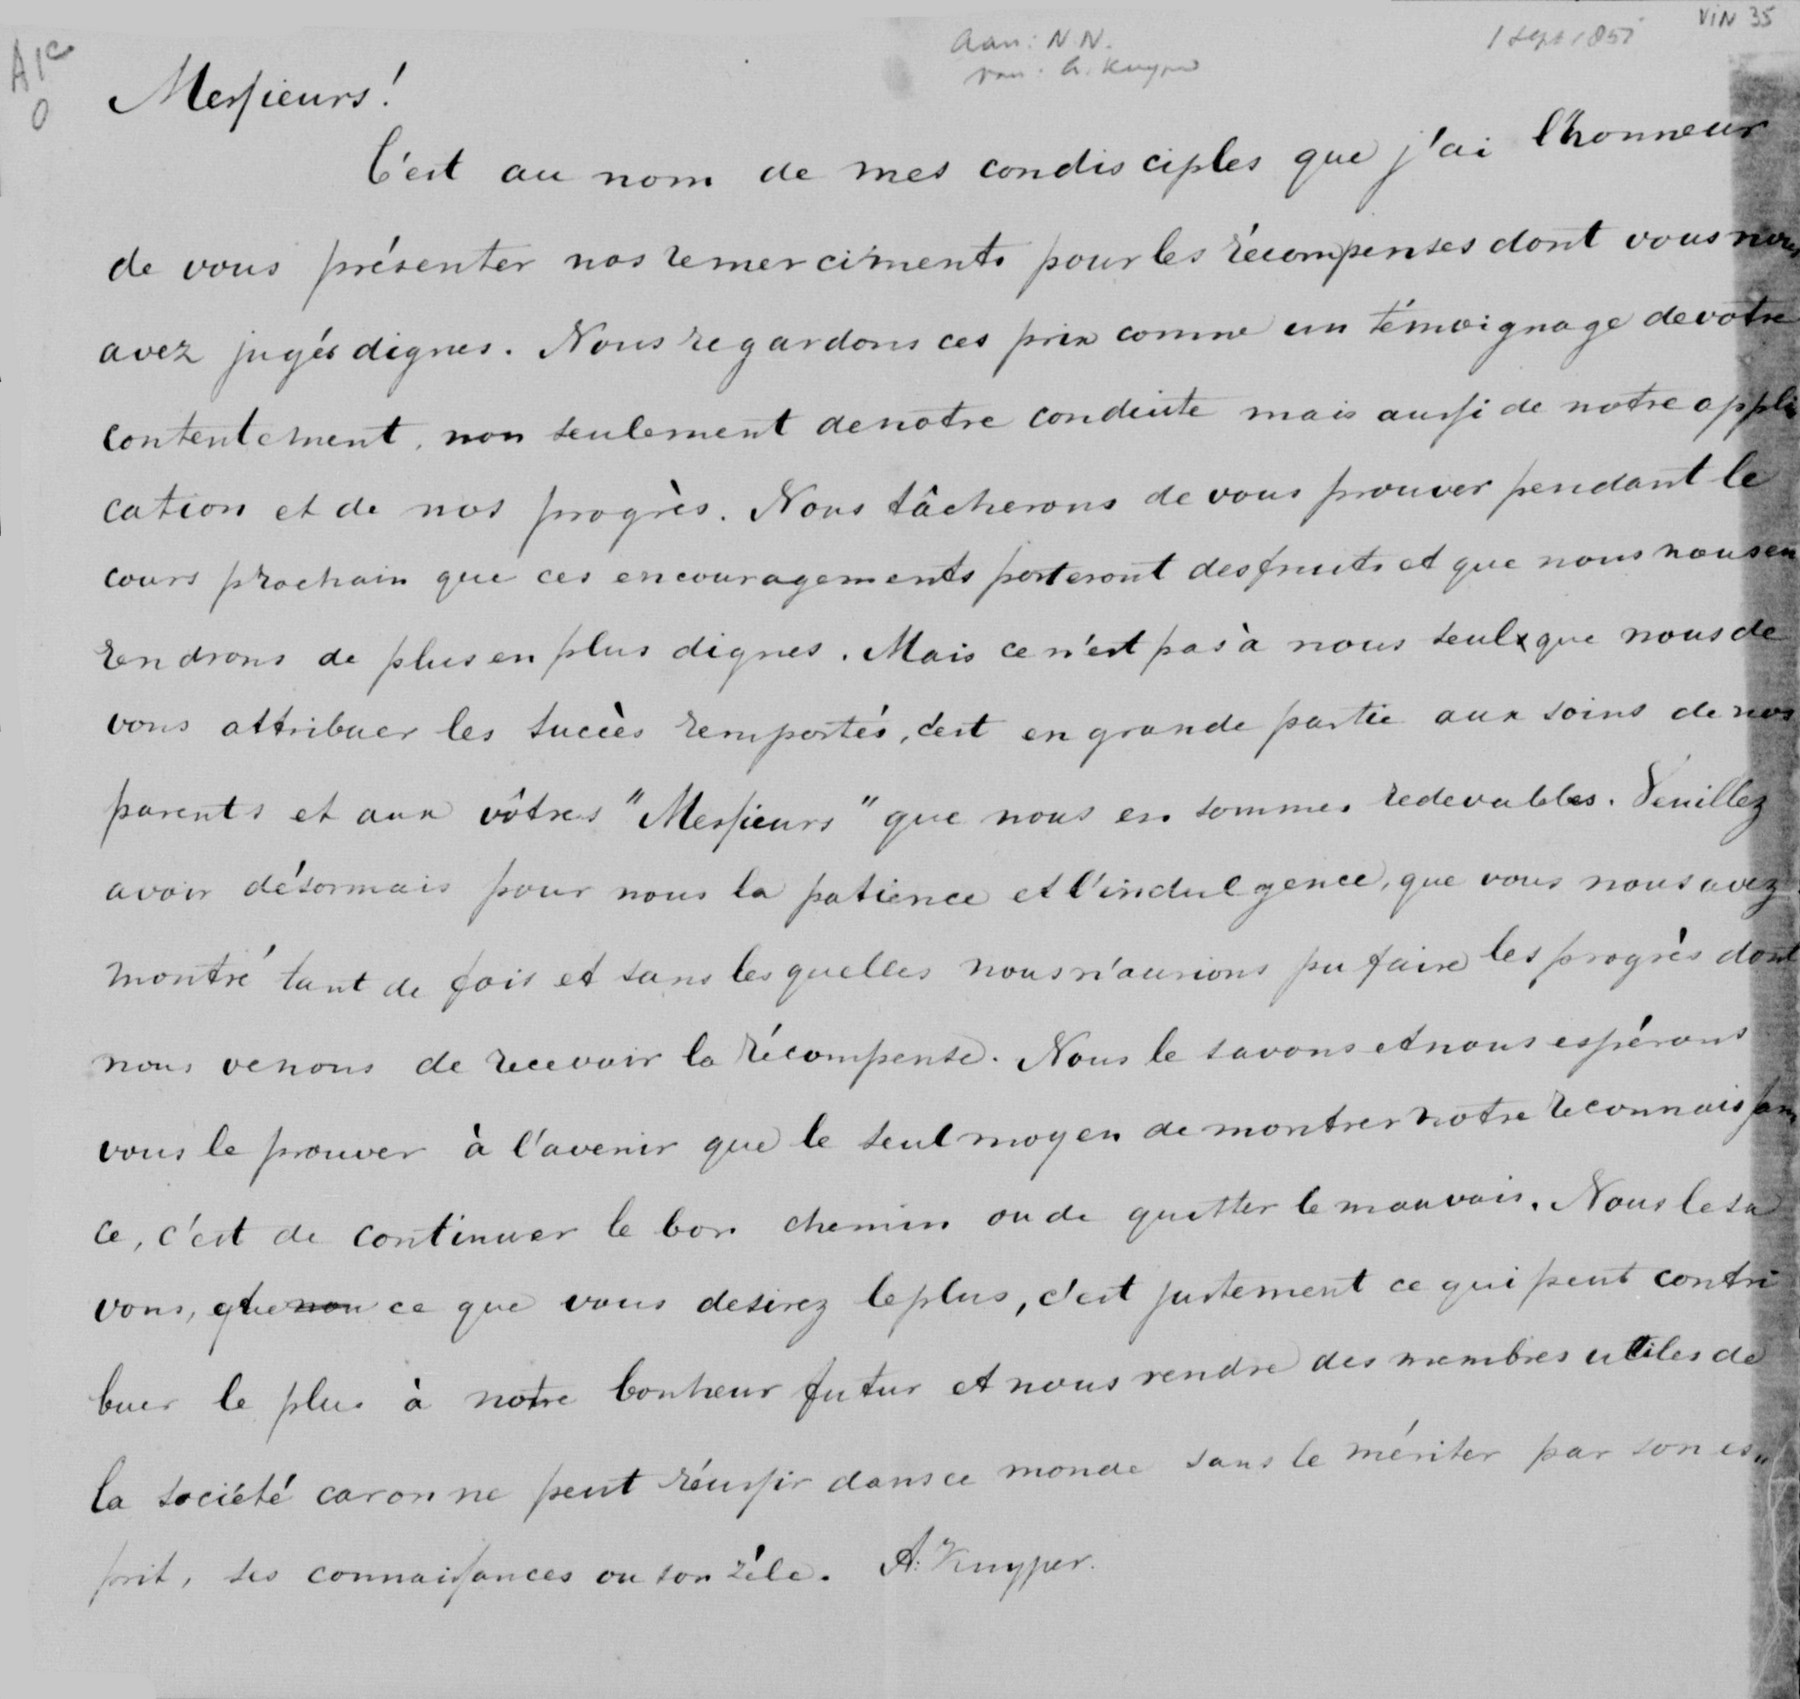 A1c
0
Aan: N.N.
van: A. Kuyper
1 Sept 1851
VIN 35
Messieurs!
C'est au nom de mes condisciples que j'ai l'honneur
de vous présenter nos remerciments pour les récompenses dont vous nous
avez jugés dignes. Nous regardons ces prix comme un témoignage de votre
contentement, non seulement de notre conduite mais aussi de notre appli
cation et de nos progrès. Nous tâcherons de vous prouver pendant le
cours prochain que ces encouragements porteront des fruits et que nous nous en
rendrons de plus en plus dignes. Mais ce n'est pas à nous seuls que nous de
vons attribuer les succès remportés, c'est en grande partie aux soins de nos
parents et aux vôtres "Messieurs" que nous en sommes redevables. Veuillez
avoir désormais pour nous la patience et l'indulgence, que vous nous avez
montré tant de fois et sans lesquelles nous n'aurions pu faire les progrès dont
nous venons de recevoir la récompense. Nous le savons et nous espérons
vous le prouver à l'avenir que le seul moyen de montrer notre reconnaissan
ce, c'est de continuer le bon chemin ou de quitter le mauvais. Nous le sa
vons, que non ce que vous desirez le plus, c'est justement ce qui peut contri
buer le plus à notre bonheur futur et nous rendre des membres utiles de
la société car on ne peut réussir dans ce monde sans le mériter par son es„
prit, ses connaissances ou son zéle. A. Kuyper.